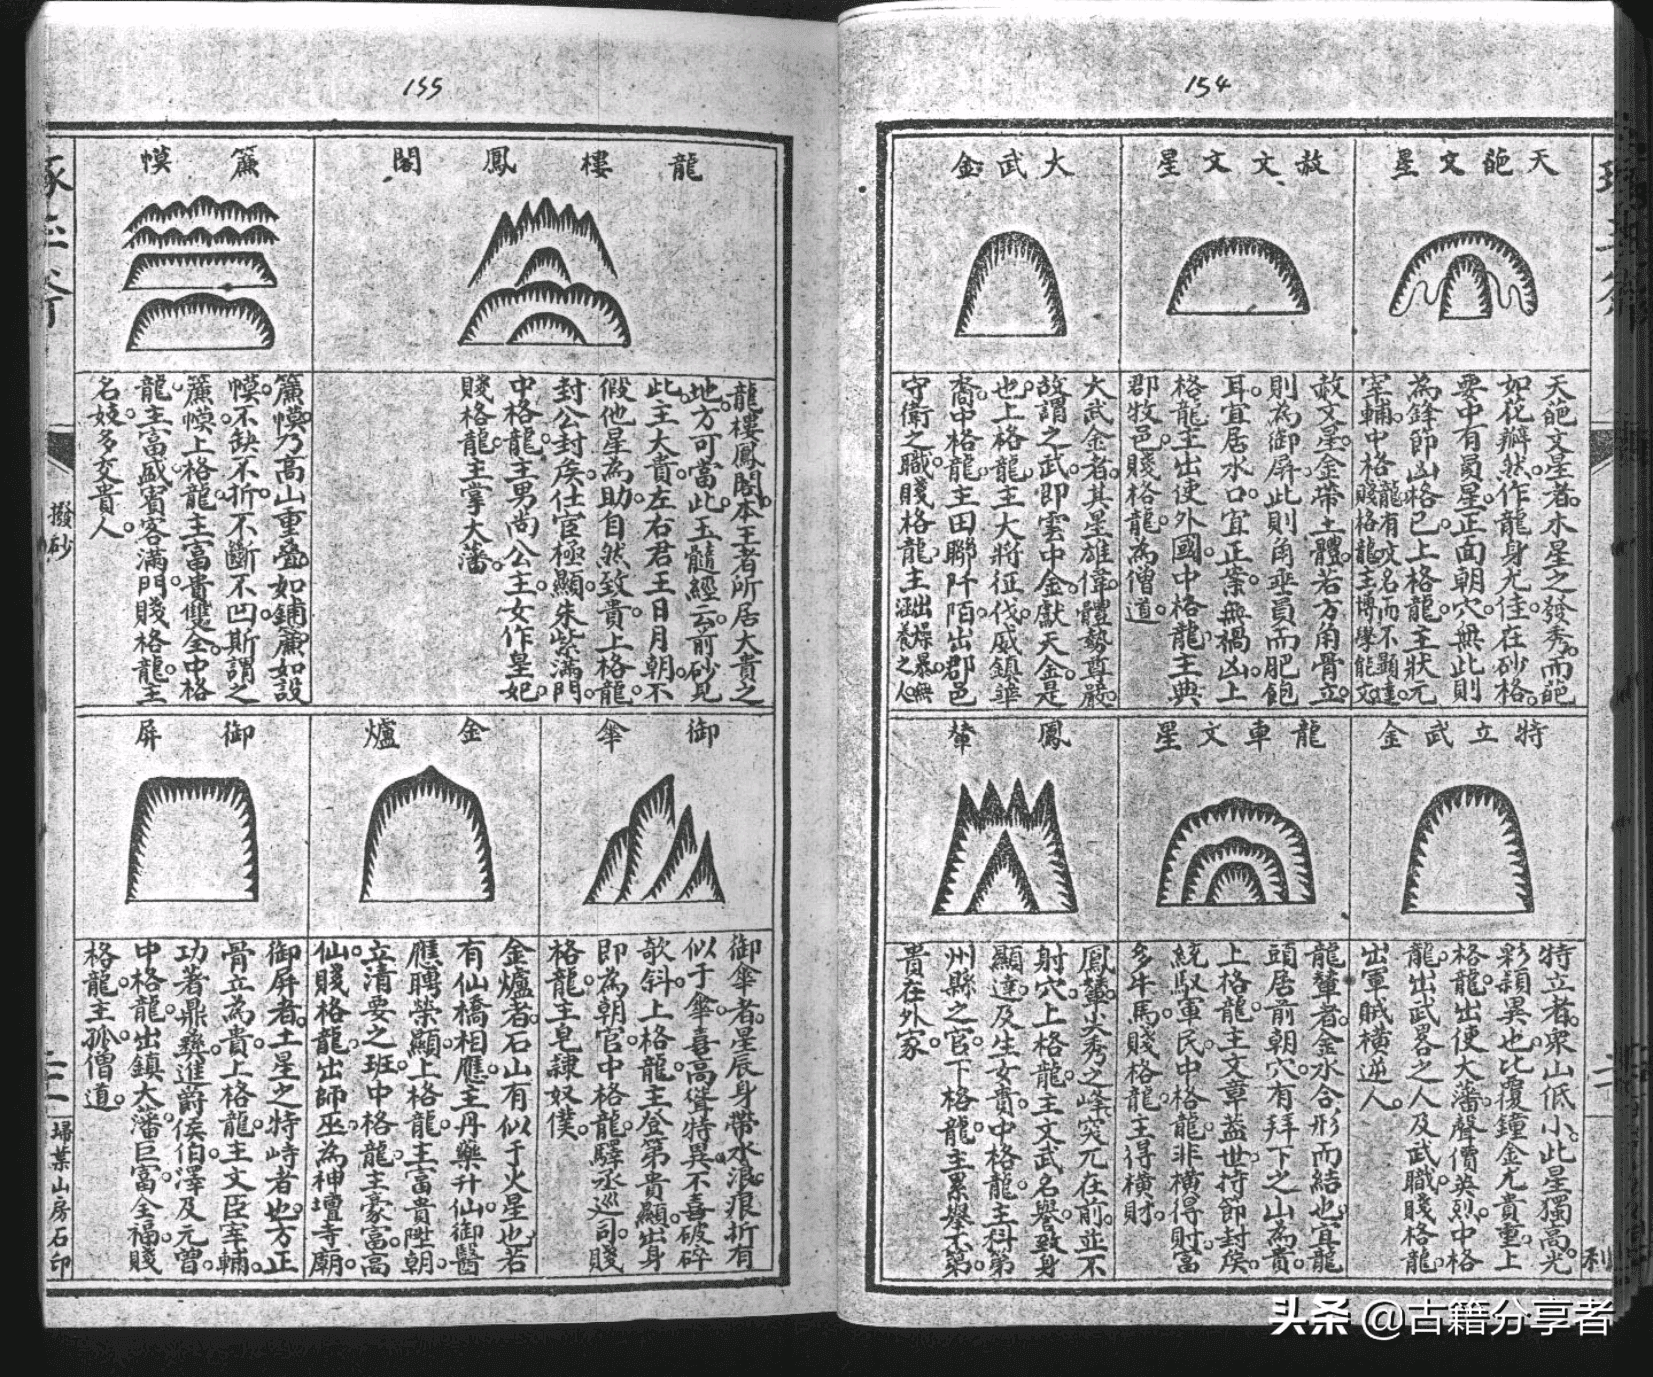 154
天葩文星
天葩文星者木星之發秀而葩
如花瓣然作龍身尤佳在砂格
要中有曷星正面朝穴無此則
為鋒節凶格已上格龍主狀元
宰輔中格龍有文名而不顯達
賤格龍主博學能文
赦文文星
赦文星金帶土體若方角骨立
則為御屏此則角垂員而肥飽
耳宜居水口宜正案無禍凶上
格龍主出使外國中格龍主典
郡牧邑賤格龍為僧道
大武金
大武金者其星雄偉體勢尊嚴
故謂之武即雲中金獻天金是
也上格龍主大將征伐威鎮華
裔中格龍主田聯阡陌出郡邑
守衛之職賤格龍主出操暴無
涵養之人
特立武金
特立者眾山低小此星獨高光
彩穎異也比覆鐘金尤貴重上
格龍出使大藩聲價英烈中格
龍出武畧之人及武職賤格龍
出軍賊橫逆人
龍車文星
龍輦者金水合形而結也宜龍
頭居前朝穴有拜下之山為貴
上格龍主文章蓋世持節封侯
統馭軍民中格龍非橫得財富
多牛馬賤格龍主得橫財
鳳輦
鳳輦尖秀之峰突兀在前並不
射穴上格龍主文武名譽致身
顯達及生女貴中格龍主科第
州縣之官下格龍主累舉不第
貴在外家
利
155
龍樓鳳閣
龍樓鳳閣本王者所居大貴之
地方可當此玉髓經云前砂見
此主大貴左右君王日月朝不
假他星為助自然致貴上格龍
封公封侯仕宦極顯朱紫滿門
中格龍主男尚公主女作皇妃
賤格龍主掌大藩
簾幙
簾幙乃高山重叠如鋪簾如設
幙不缺不折不斷不凹斯謂之
簾幙上格龍主富貴雙全中格
龍主富盛賓客滿門賤格龍主
名妓多交貴人
御傘
御傘者星辰身帶水浪痕折有
似于傘喜高聳特異不喜破碎
欹斜上格龍主登第貴顯出身
即為朝官中格龍驛丞巡司賤
格龍主皂隸奴僕
金爐
金爐者石山有似于火星也若
有仙橋相應主丹藥升仙御醫
應聘榮顯上格龍主富貴陞朝
立清要之班中格龍主豪富高
仙賤格龍出師巫為神壇寺廟
御屏
御屏者土星之特峙者也方正
骨立為貴上格龍主文臣宰輔
功著鼎彝進爵侯伯澤及元曾
中格龍出鎮大藩巨富全福賤
格龍主孤僧道
撥砂
掃葉山房石印
头条 @古籍分享者